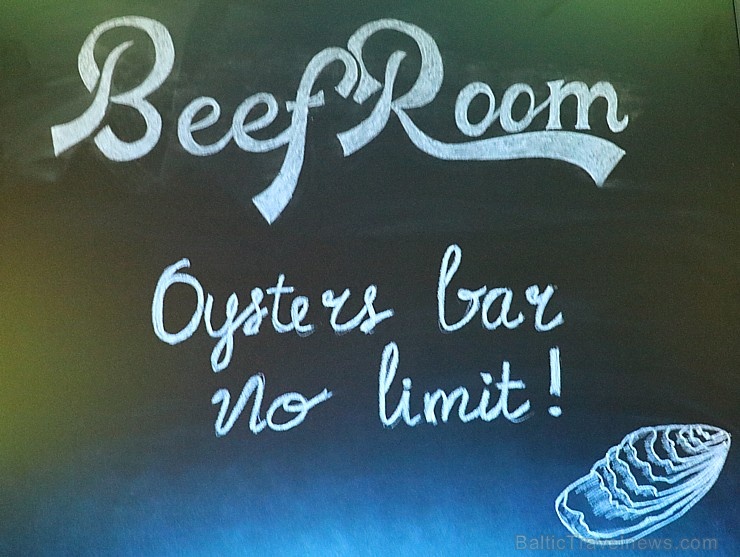 Beef Room
Oysters bar
no limit!
BalticTravelnews.com